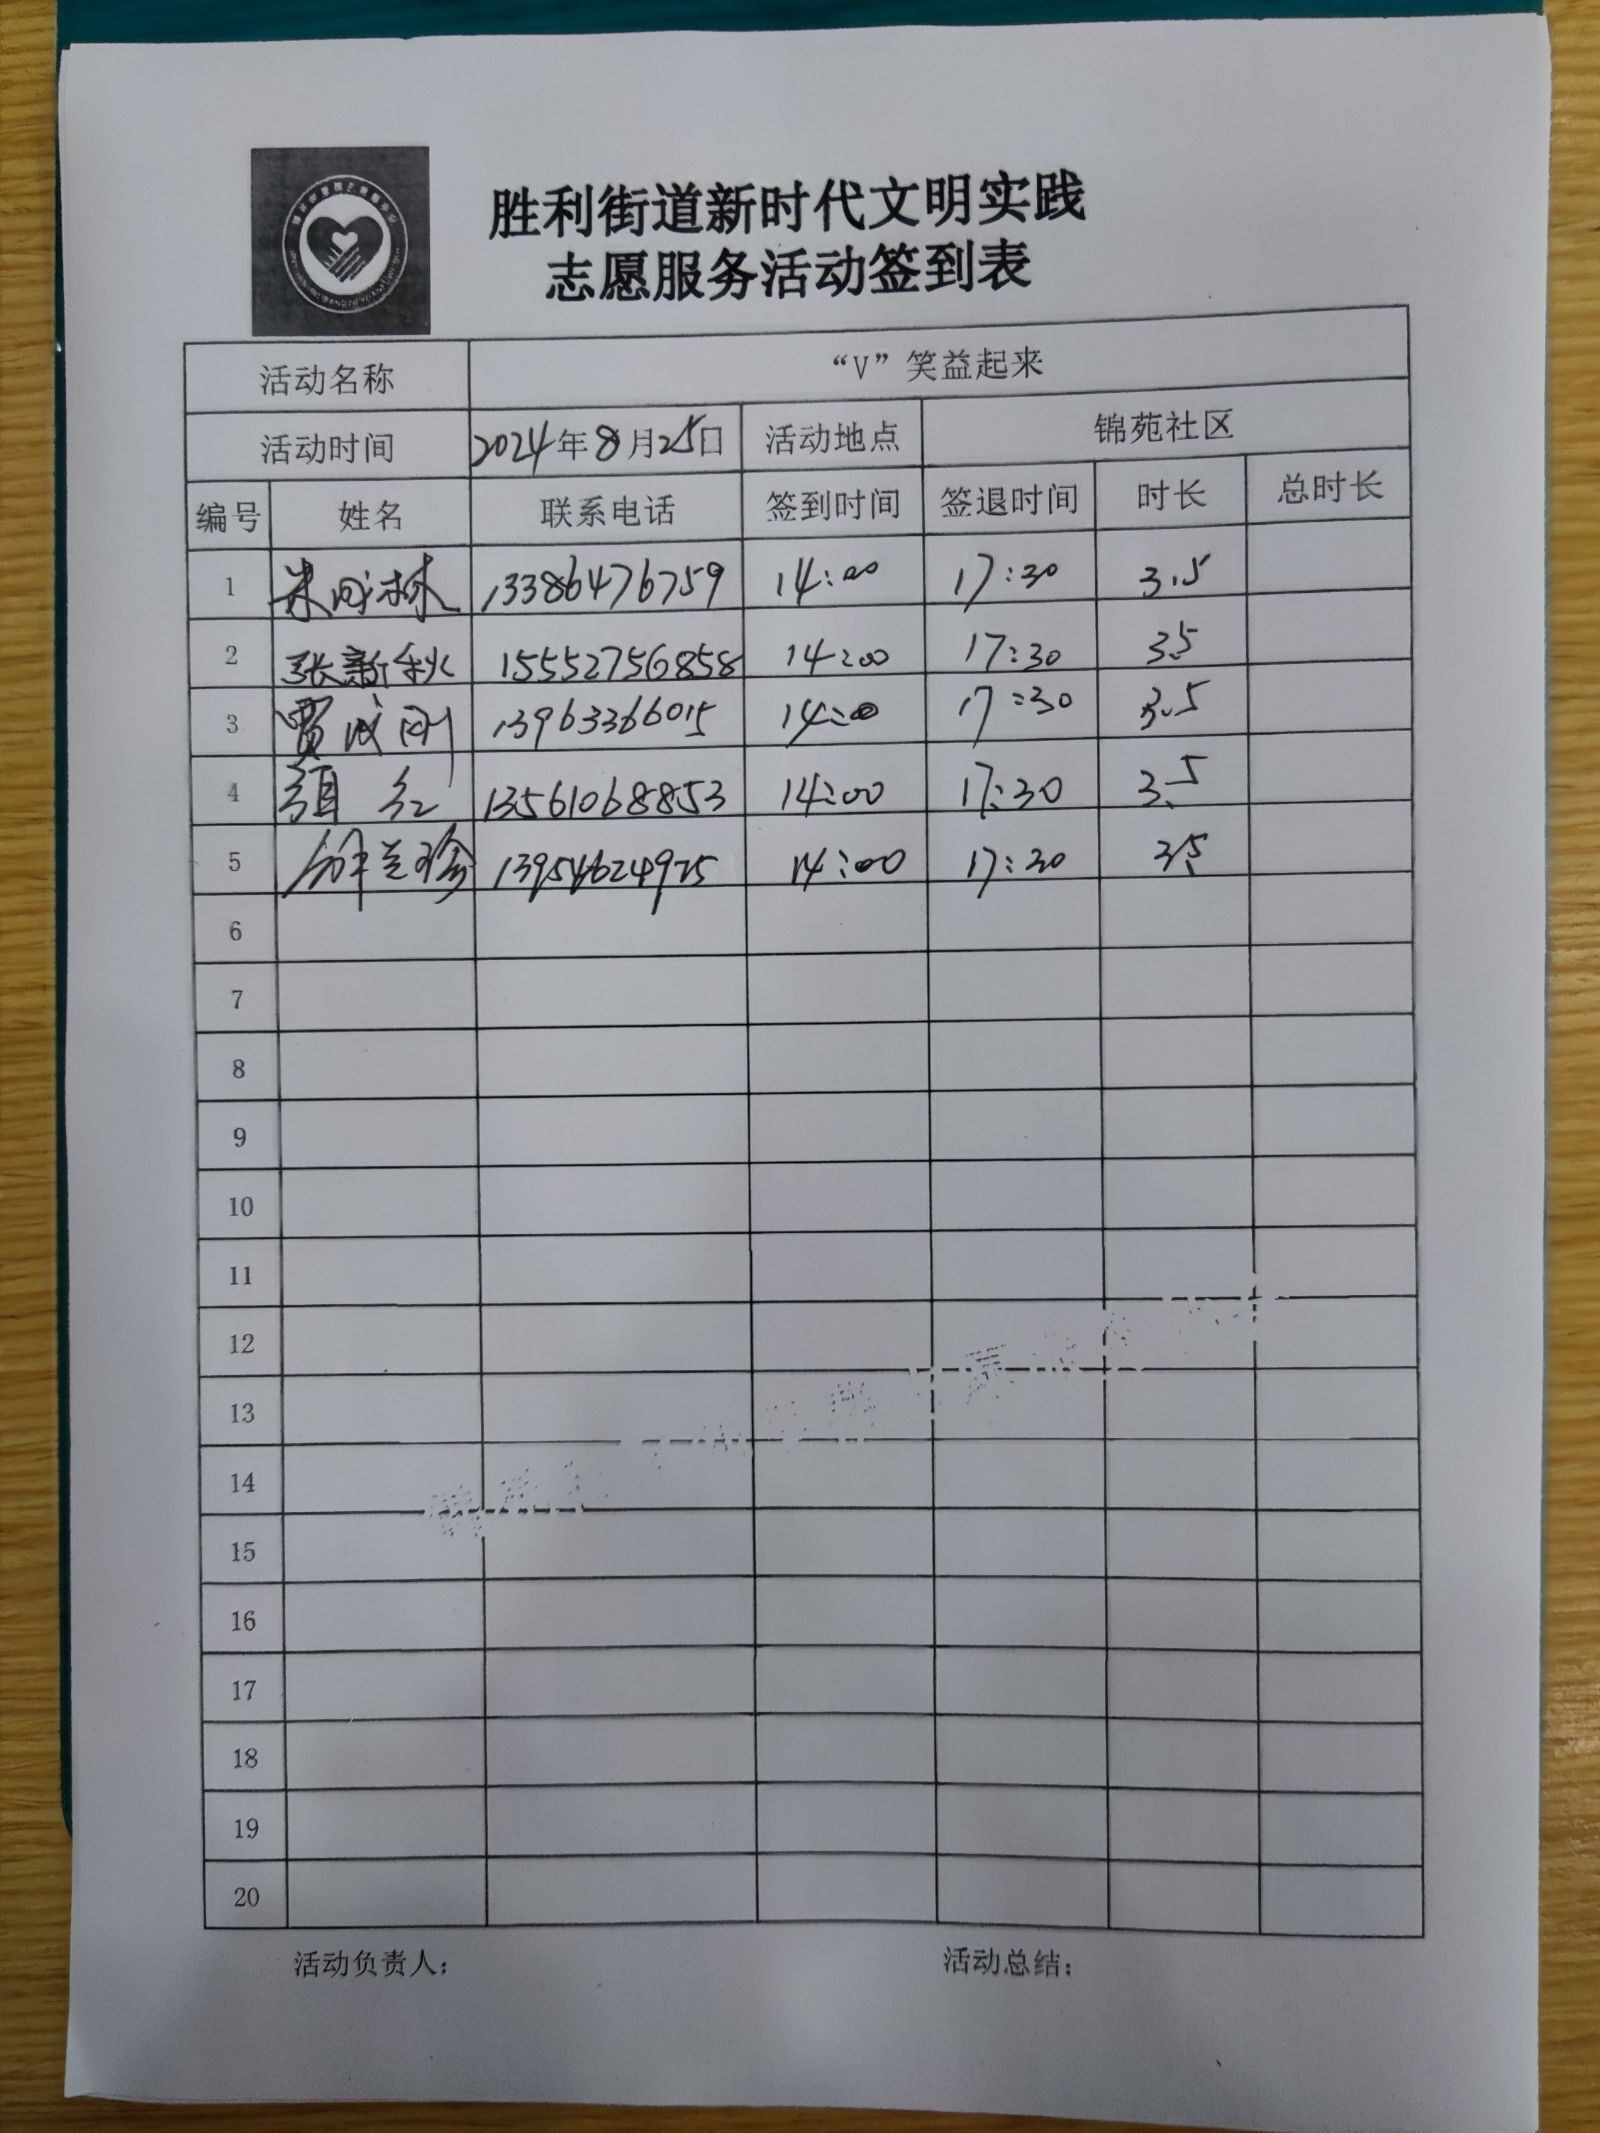 胜利街道新时代文明实践
志愿服务活动签到表
活动名称 “V”笑益起来
活动时间 2024年8月25日 活动地点 锦苑社区
编号 姓名 联系电话 签到时间 签退时间 时长 总时长
1 13386476759 14:00 17:30 3.5
2 张新秋 15552756858 14:00 17:30 3.5
3 贾成刚 13963366015 14:00 17:30 3.5
4 红 13561068853 14:00 17:30 3.5
5 兰珍 13954624925 14:00 17:30 3.5
6
7
8
9
10
11
12
13
14
15
16
17
18
19
20
活动负责人： 活动总结：